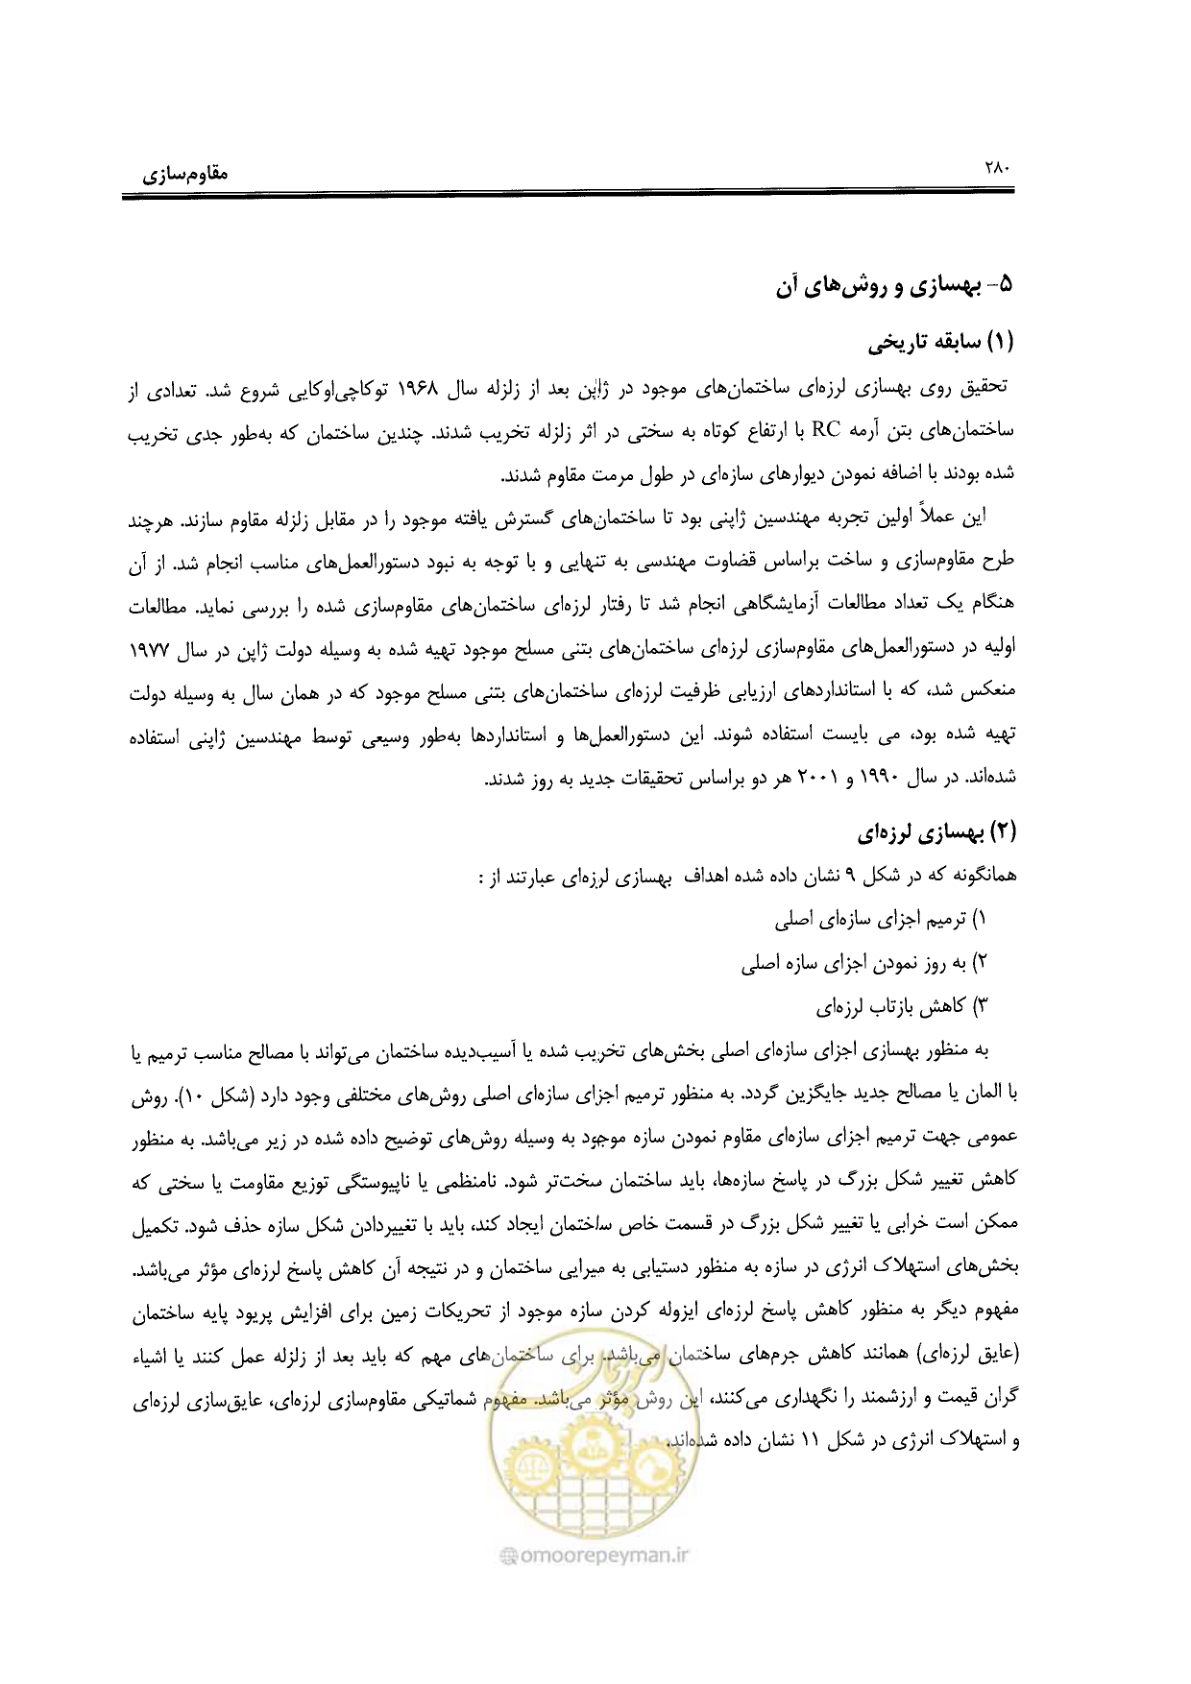 ۲۸۰
مقاوم‌سازی
۵- بهسازی و روش‌های آن
(۱) سابقه تاریخی
تحقیق روی بهسازی لرزه‌ای ساختمان‌های موجود در ژاپن بعد از زلزله سال ۱۹۶۸ توکاچی‌اوکایی شروع شد. تعدادی از
ساختمان‌های بتن آرمه RC با ارتفاع کوتاه به سختی در اثر زلزله تخریب شدند. چندین ساختمان که به‌طور جدی تخریب
شده بودند با اضافه نمودن دیوارهای سازه‌ای در طول مرمت مقاوم شدند.
این عملاً اولین تجربه مهندسین ژاپنی بود تا ساختمان‌های گسترش یافته موجود را در مقابل زلزله مقاوم سازند. هرچند
طرح مقاوم‌سازی و ساخت براساس قضاوت مهندسی به تنهایی و با توجه به نبود دستورالعمل‌های مناسب انجام شد. از آن
هنگام یک تعداد مطالعات آزمایشگاهی انجام شد تا رفتار لرزه‌ای ساختمان‌های مقاوم‌سازی شده را بررسی نماید. مطالعات
اولیه در دستورالعمل‌های مقاوم‌سازی لرزه‌ای ساختمان‌های بتنی مسلح موجود تهیه شده به وسیله دولت ژاپن در سال ۱۹۷۷
منعکس شد، که با استانداردهای ارزیابی ظرفیت لرزه‌ای ساختمان‌های بتنی مسلح موجود که در همان سال به وسیله دولت
تهیه شده بود، می بایست استفاده شوند. این دستورالعمل‌ها و استانداردها به‌طور وسیعی توسط مهندسین ژاپنی استفاده
شده‌اند. در سال ۱۹۹۰ و ۲۰۰۱ هر دو براساس تحقیقات جدید به روز شدند.
(۲) بهسازی لرزه‌ای
همانگونه که در شکل ۹ نشان داده شده اهداف بهسازی لرزه‌ای عبارتند از :
۱) ترمیم اجزای سازه‌ای اصلی
۲) به روز نمودن اجزای سازه اصلی
۳) کاهش بازتاب لرزه‌ای
به منظور بهسازی اجزای سازه‌ای اصلی بخش‌های تخریب شده یا آسیب‌دیده ساختمان می‌تواند با مصالح مناسب ترمیم یا
با المان یا مصالح جدید جایگزین گردد. به منظور ترمیم اجزای سازه‌ای اصلی روش‌های مختلفی وجود دارد (شکل ۱۰). روش
عمومی جهت ترمیم اجزای سازه‌ای مقاوم نمودن سازه موجود به وسیله روش‌های توضیح داده شده در زیر می‌باشد. به منظور
کاهش تغییر شکل بزرگ در پاسخ سازه‌ها، باید ساختمان سخت‌تر شود. نامنظمی یا ناپیوستگی توزیع مقاومت یا سختی که
ممکن است خرابی یا تغییر شکل بزرگ در قسمت خاص ساختمان ایجاد کند، باید با تغییردادن شکل سازه حذف شود. تکمیل
بخش‌های استهلاک انرژی در سازه به منظور دستیابی به میرایی ساختمان و در نتیجه آن کاهش پاسخ لرزه‌ای مؤثر می‌باشد.
مفهوم دیگر به منظور کاهش پاسخ لرزه‌ای ایزوله کردن سازه موجود از تحریکات زمین برای افزایش پریود پایه ساختمان
(عایق لرزه‌ای) همانند کاهش جرم‌های ساختمان می‌باشد. برای ساختمان‌های مهم که باید بعد از زلزله عمل کنند یا اشیاء
گران قیمت و ارزشمند را نگهداری می‌کنند، این روش مؤثر می‌باشد. مفهوم شماتیکی مقاوم‌سازی لرزه‌ای، عایق‌سازی لرزه‌ای
و استهلاک انرژی در شکل ۱۱ نشان داده شده‌اند.
امور پیمان
@omoorepeyman.ir